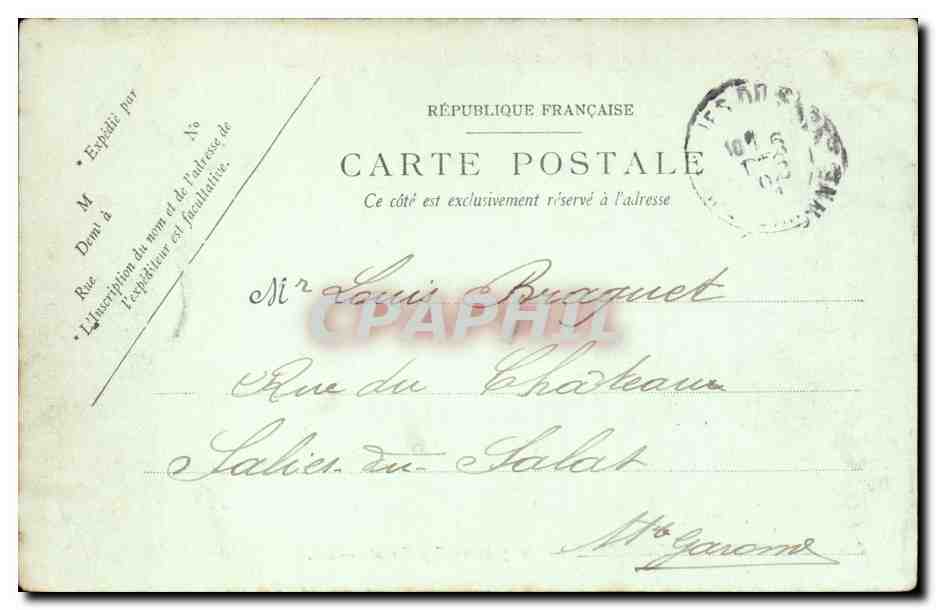 * Expédié par
M
Demt à
Rue N°
* L'Inscription du nom et de l'adresse de
l'expéditeur est facultative.
RÉPUBLIQUE FRANÇAISE
CARTE POSTALE
Ce côté est exclusivement réservé à l'adresse
Mr Louis Braquet
CPAPHIL
Rue du Château
Salies-du-Salat
Hte Garonne